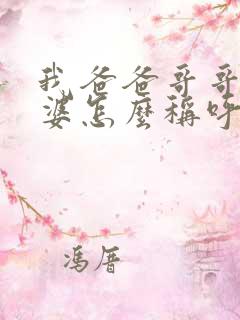 我爸爸哥哥
婆怎麼稱呼
馮厝